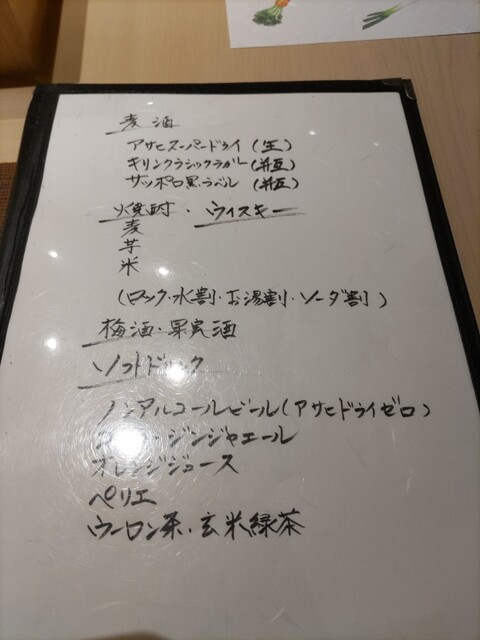 麦酒
アサヒスーパードライ(生)
キリンクラシックラガー(瓶)
サッポロ黒ラベル(瓶)
焼酎・ウイスキー
麦
芋
米
(ロック・水割・お湯割・ソーダ割)
梅酒・果実酒
ソフトドリンク
ノンアルコールビール(アサヒドライゼロ)
ジンジャエール
オレンジジュース
ペリエ
ウーロン茶・玄米緑茶